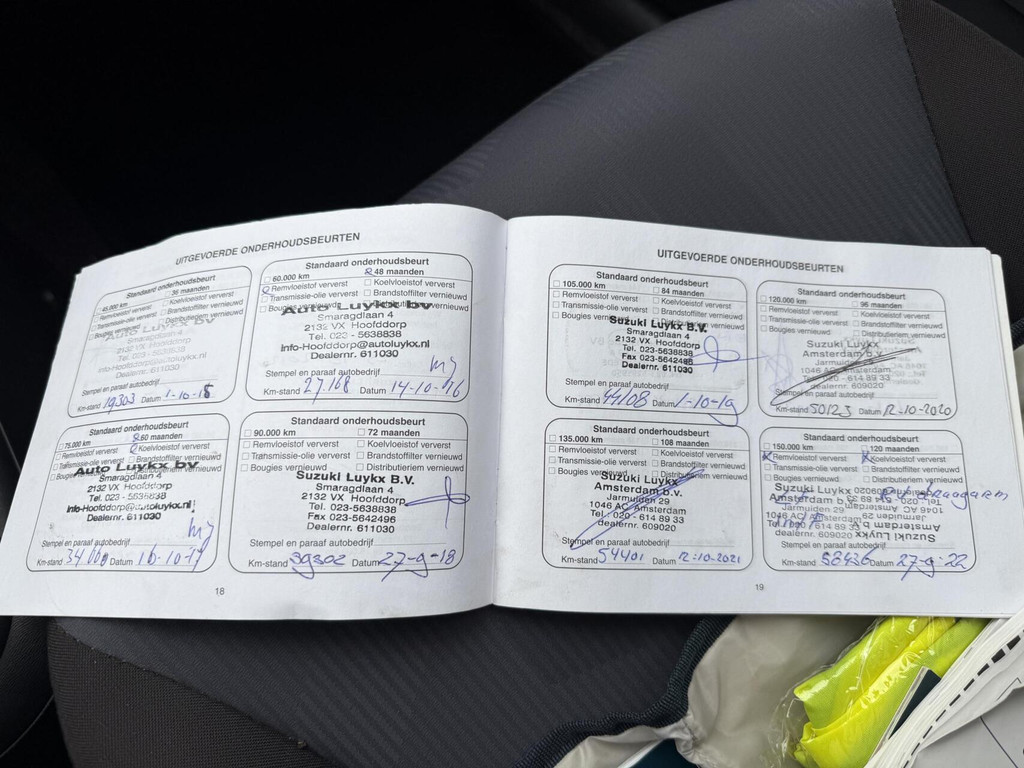 UITGEVOERDE ONDERHOUDSBEURTEN
Standaard onderhoudsbeurt
45.000 km
36 maanden
Remvloeistof ververst
Koelvloeistof ververst
Transmissie-olie ververst
Brandstoffilter vernieuwd
Auto Luykx bv
Smaragdlaan 4
2132 VX Hoofddorp
Tel. 023 - 5638838
info-Hoofddorp@autoluykx.nl
Dealernr. 611030
Stempel en paraaf autobedrijf
Km-stand 19303 Datum 1-10-15
Standaard onderhoudsbeurt
60.000 km
48 maanden
Remvloeistof ververst
Koelvloeistof ververst
Transmissie-olie ververst
Brandstoffilter vernieuwd
Auto Luykx bv
Smaragdlaan 4
2132 VX Hoofddorp
Tel. 023 - 5638838
info-Hoofddorp@autoluykx.nl
Dealernr. 611030
Stempel en paraaf autobedrijf
Km-stand 27168 Datum 14-10-16
Standaard onderhoudsbeurt
75.000 km
60 maanden
Remvloeistof ververst
Koelvloeistof ververst
Transmissie-olie ververst
Brandstoffilter vernieuwd
Auto Luykx bv
Smaragdlaan 4
2132 VX Hoofddorp
Tel. 023 - 5638838
info-Hoofddorp@autoluykx.nl
Dealernr. 611030
Stempel en paraaf autobedrijf
Km-stand Datum 16-10-17
Standaard onderhoudsbeurt
90.000 km
72 maanden
Remvloeistof ververst
Koelvloeistof ververst
Transmissie-olie ververst
Brandstoffilter vernieuwd
Bougies vernieuwd
Distributieriem vernieuwd
Suzuki Luykx B.V.
Smaragdlaan 4
2132 VX Hoofddorp
Tel. 023-5638838
Fax 023-5642496
Dealernr. 611030
Stempel en paraaf autobedrijf
Km-stand 39302 Datum 27-9-18
18
UITGEVOERDE ONDERHOUDSBEURTEN
Standaard onderhoudsbeurt
105.000 km
84 maanden
Remvloeistof ververst
Koelvloeistof ververst
Transmissie-olie ververst
Brandstoffilter vernieuwd
Bougies
Suzuki Luykx B.V.
Smaragdlaan 4
2132 VX Hoofddorp
Tel. 023-5638838
Fax 023-5642496
Dealernr. 611030
Stempel en paraaf autobedrijf
Km-stand 44108 Datum 1-10-19
Standaard onderhoudsbeurt
120.000 km
96 maanden
Remvloeistof ververst
Koelvloeistof ververst
Transmissie-olie ververst
Brandstoffilter vernieuwd
Bougies vernieuwd
Distributieriem vernieuwd
Suzuki Luykx
Amsterdam b.v.
Jarmuiden 29
1046 AC Amsterdam
Tel.: 020 - 614 89 33
dealernr. 609020
Stempel en paraaf autobedrijf
Km-stand 50123 Datum 12-10-2020
Standaard onderhoudsbeurt
135.000 km
108 maanden
Remvloeistof ververst
Koelvloeistof ververst
Transmissie-olie ververst
Brandstoffilter vernieuwd
Bougies
Distributieriem vernieuwd
Suzuki Luykx
Amsterdam b.v.
Jarmuiden 29
1046 AC Amsterdam
Tel.: 020 - 614 89 33
dealernr. 609020
Stempel en paraaf autobedrijf
Km-stand 54401 Datum 12-10-2021
Standaard onderhoudsbeurt
150.000 km
120 maanden
Remvloeistof ververst
Koelvloeistof ververst
Transmissie-olie ververst
Brandstoffilter vernieuwd
Bougies vernieuwd
Suzuki Luykx
Amsterdam b.v.
Jarmuiden 29
1046 AC Amsterdam
dealernr. 609020
Stempel en paraaf autobedrijf
Km-stand 58436 Datum 27-9-22
19